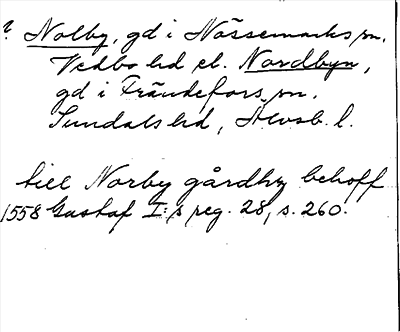 ? Nolby, gd i Nössemarks sn.
Vedbo hd el. Nordbyn,
gd i Frändefors sn.
Sundals hd, Älvsb. l.
till Norby gårdhz behoff
1558 Gustaf I:s reg. 28, s. 260.